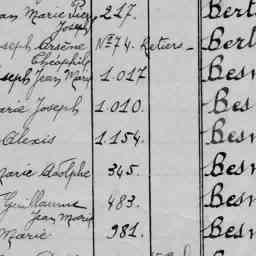 an Marie Pierre 217. Bert
Joseph
seph Arsène Nº 74. Retiers - Berl
Théophile
seph Jean Marie 1.017 Besn
arie Joseph 1.010. Bes
Alexis 1.154. Besn
Marie Adolphe 345. Besn
Guillaume 483. Besn
Jean Marie
Marie 981. Besn